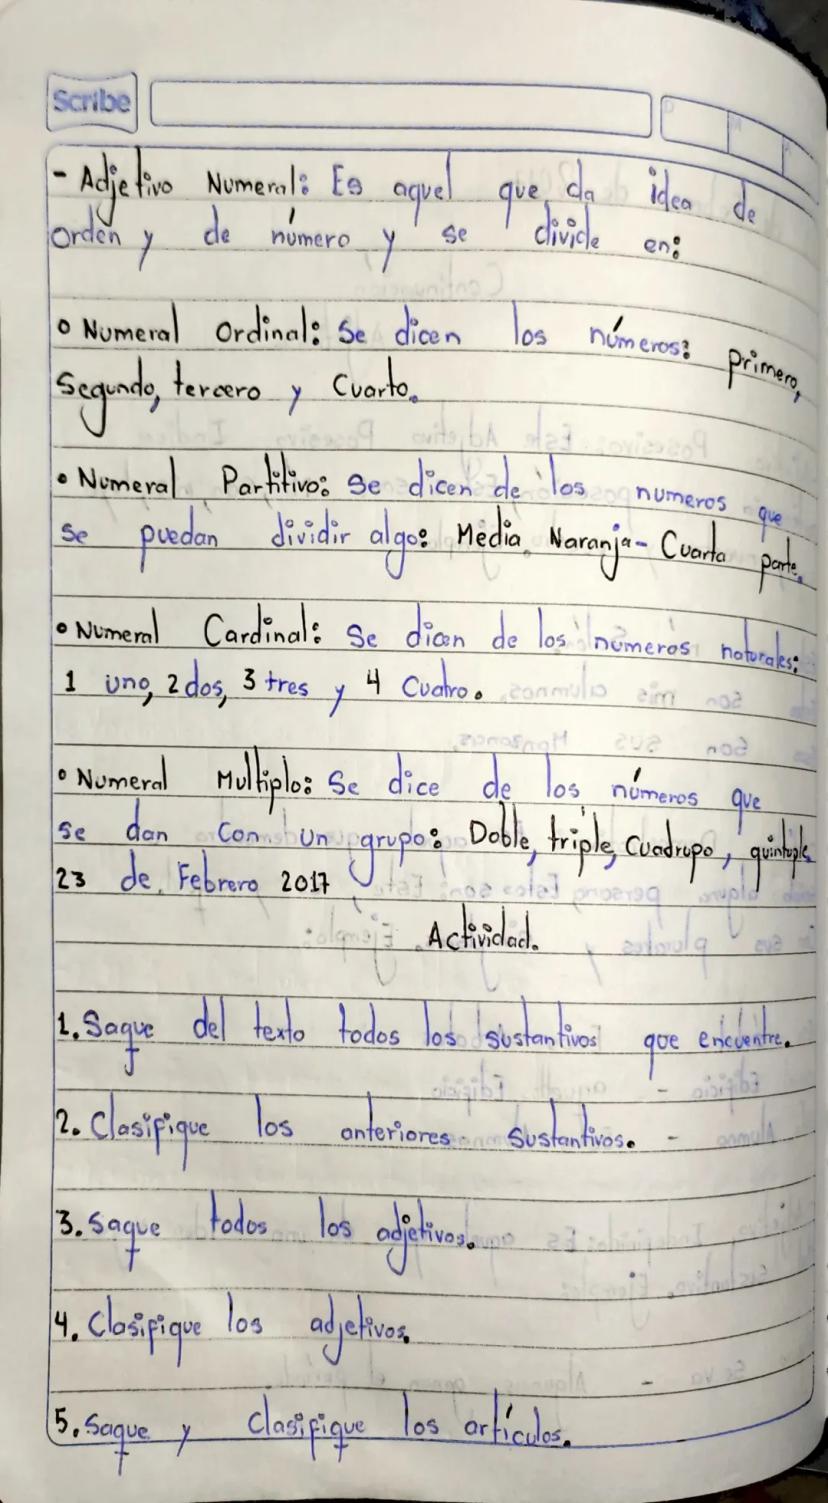 Scribe
- Adjetivo Numeral: Es aquel que da idea de
orden y de número y se divide en:
o Numeral Ordinal: Se dicen los números: primero,
Segundo, tercero y Cuarto.
• Numeral Partitivo: Se dicen de los numeros que
se puedan dividir algo: Media Naranja - Cuarta parte.
• Numeral Cardinal: Se dicen de los numeros naturales:
1 uno, 2 dos, 3 tres y 4 Cuatro.
• Numeral Multiplo: Se dice de los números que
se dan con un grupo: Doble, triple, Cuadrupo, quintuple
23 de Febrero 2017
Actividad.
1. Saque del texto todos los sustantivos que encuentre.
2. Clasifique los anteriores sustantivos. -
3. Saque todos los adjetivos.
4. Clasifique los adjetivos.
5. Saque y clasifique los artículos.